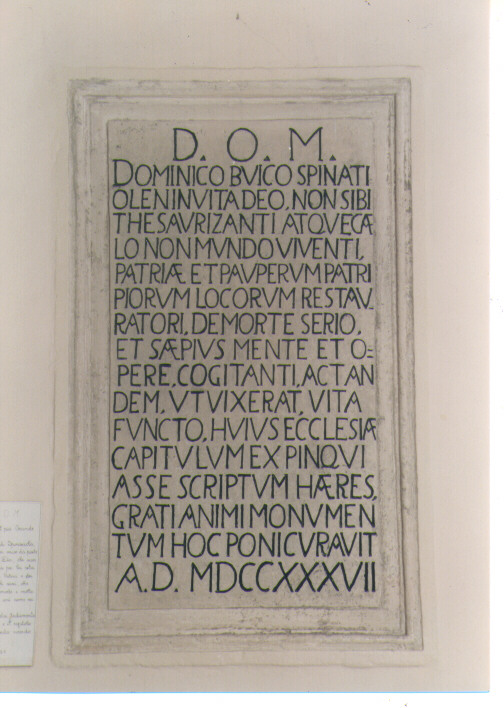 D. O. M.
DOMINICO BVICO SPINATI
OLEN INVITA DEO, NON SIBI
THESAVRIZANTI ATQVE CÆ
LO NON MVNDO VIVENTI,
PATRIÆ ET PAVPERVM PATRI
PIORVM LOCORVM RESTAV
RATORI, DE MORTE SERIO,
ET SÆPIVS MENTE ET O=
PERE, COGITANTI, ACTAN
DEM, VT VIXERAT, VITA
FVNCTO, HVIVS ECCLESIÆ
CAPITVLVM EX PINQVI
ASSE SCRIPTVM HÆRES,
GRATI ANIMI MONVMEN
TVM HOC PONI CVRAVIT
A.D. MDCCXXXVII